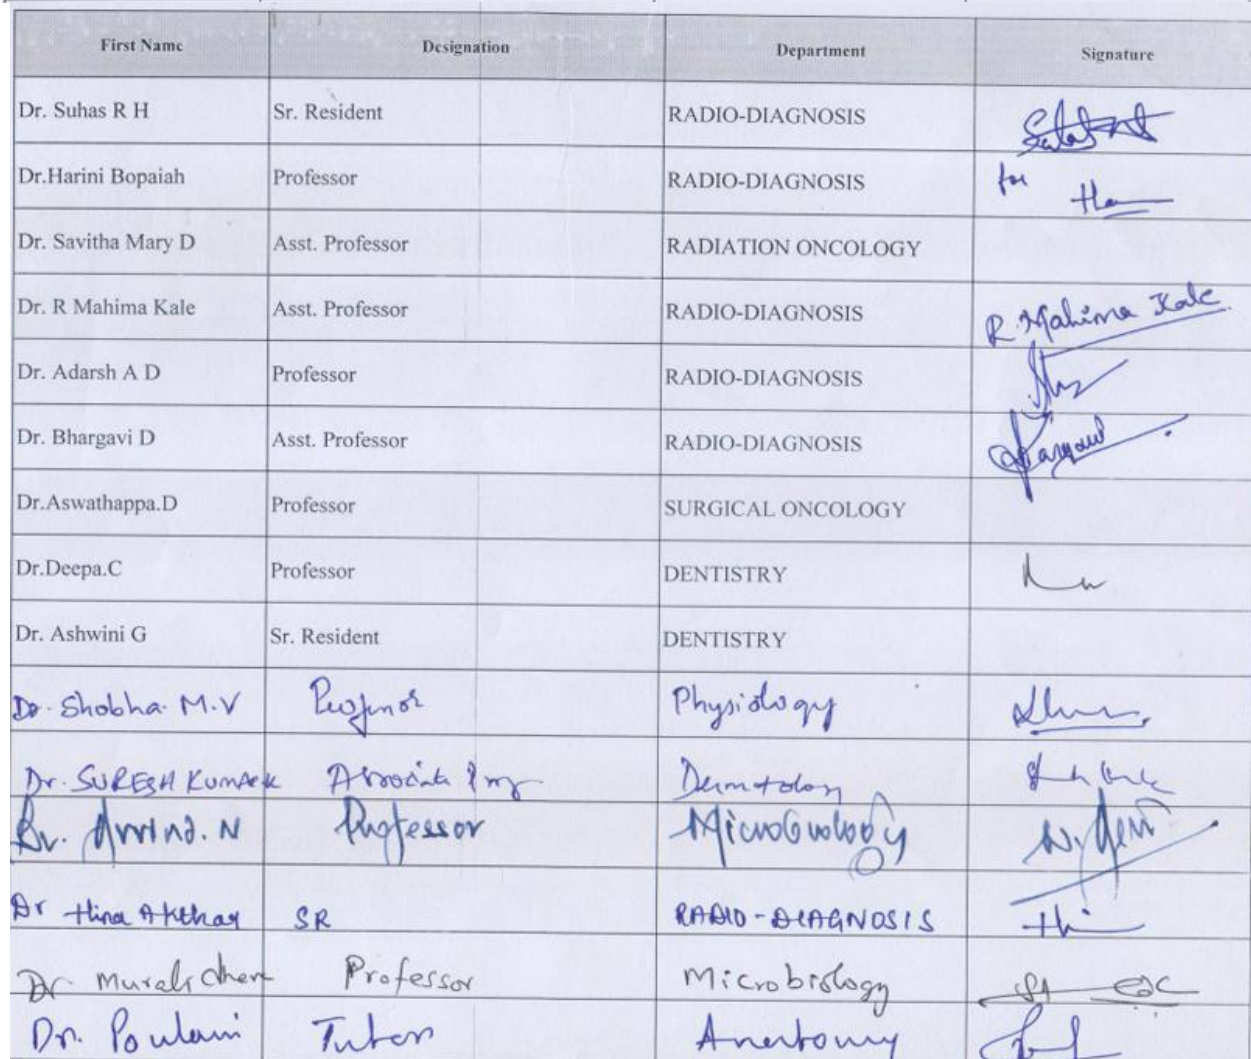 First Name Designation Department Signature
Dr. Suhas R H Sr. Resident RADIO-DIAGNOSIS
Dr.Harini Bopaiah Professor RADIO-DIAGNOSIS for
Dr. Savitha Mary D Asst. Professor RADIATION ONCOLOGY
Dr. R Mahima Kale Asst. Professor RADIO-DIAGNOSIS R. Mahima Kale
Dr. Adarsh A D Professor RADIO-DIAGNOSIS
Dr. Bhargavi D Asst. Professor RADIO-DIAGNOSIS
Dr.Aswathappa.D Professor SURGICAL ONCOLOGY
Dr.Deepa.C Professor DENTISTRY
Dr. Ashwini G Sr. Resident DENTISTRY
Dr. Shobha. M.V Professor Physiology
Dr. SURESH KUMAR K Associate Prof Dermatology
Dr. Arvind. N Professor Microbiology
Dr Hina Akthar SR RADIO-DIAGNOSIS
Dr. Professor Microbiology
Dr. Poulami Tutor Anatomy